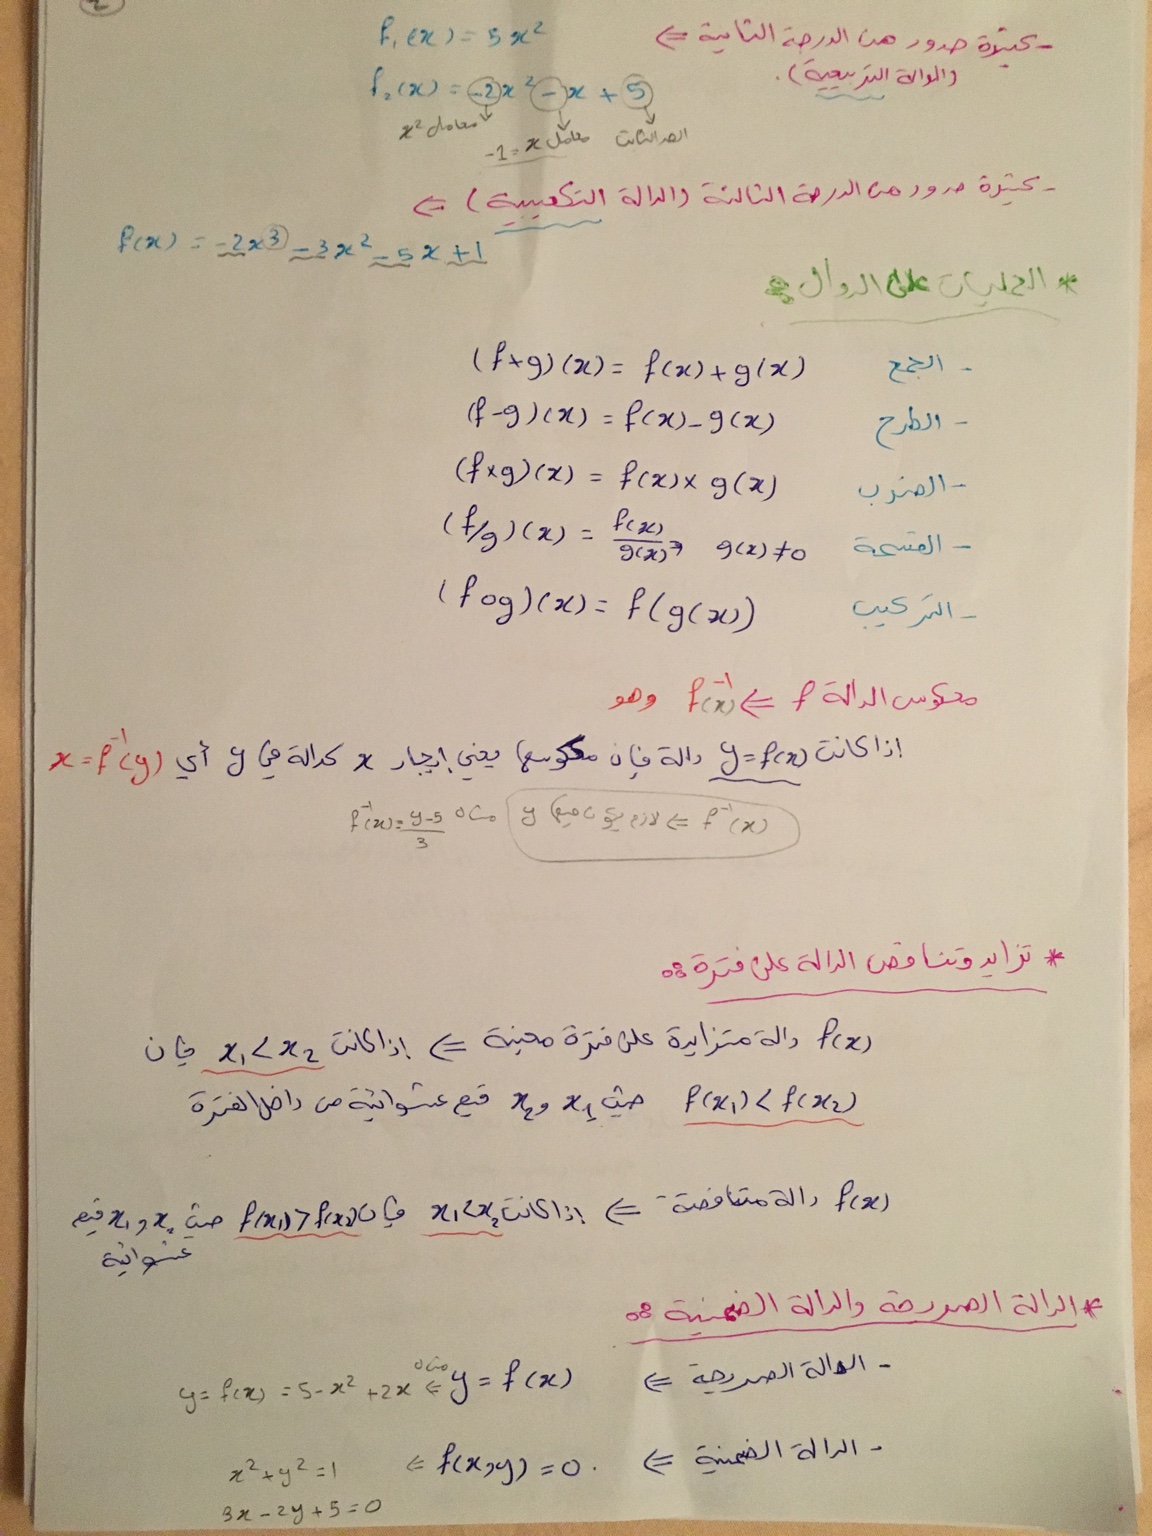 2
- كثيرة حدود من الدرجة الثانية ⇐ f₁(x) = 5x²
(الدالة التربيعية). f₂(x) = -2x² - x + 5
معامل x² معامل x = -1 الحد الثابت
- كثيرة حدود من الدرجة الثالثة (الدالة التكعيبية) ⇐
f(x) = -2x³ - 3x² - 5x + 1
* العمليات على الدوال :
- الجمع (f+g)(x) = f(x) + g(x)
- الطرح (f-g)(x) = f(x) - g(x)
- الضرب (f×g)(x) = f(x) × g(x)
- القسمة (f/g)(x) = f(x)/g(x) , g(x) ≠ 0
- التركيب (fog)(x) = f(g(x))
معكوس الدالة f ⇐ f⁻¹(x) وهو
إذا كانت y = f(x) دالة فإن معكوسها يعني إيجاد x كدالة في y أي x = f⁻¹(y)
f⁻¹(x) ⇐ لازم يكون فيها y مثال f⁻¹(x) = y-5/3
* تزايد وتناقص الدالة على فترة :
f(x) دالة متزايدة على فترة معينة ⇐ إذا كانت x₁ < x₂ فإن
f(x₁) < f(x₂) حيث x₁ و x₂ قيم عشوائية من داخل الفترة
f(x) دالة متناقصة ⇐ إذا كانت x₁ < x₂ فإن f(x₁) > f(x₂) حيث x₁ و x₂ قيم
عشوائية
* الدالة الصريحة والدالة الضمنية :
- الدالة الصريحة ⇐ y = f(x) ⇐ مثال y = f(x) = 5 - x² + 2x
- الدالة الضمنية ⇐ f(x,y) = 0 . ⇐ x² + y² = 1
3x - 2y + 5 = 0